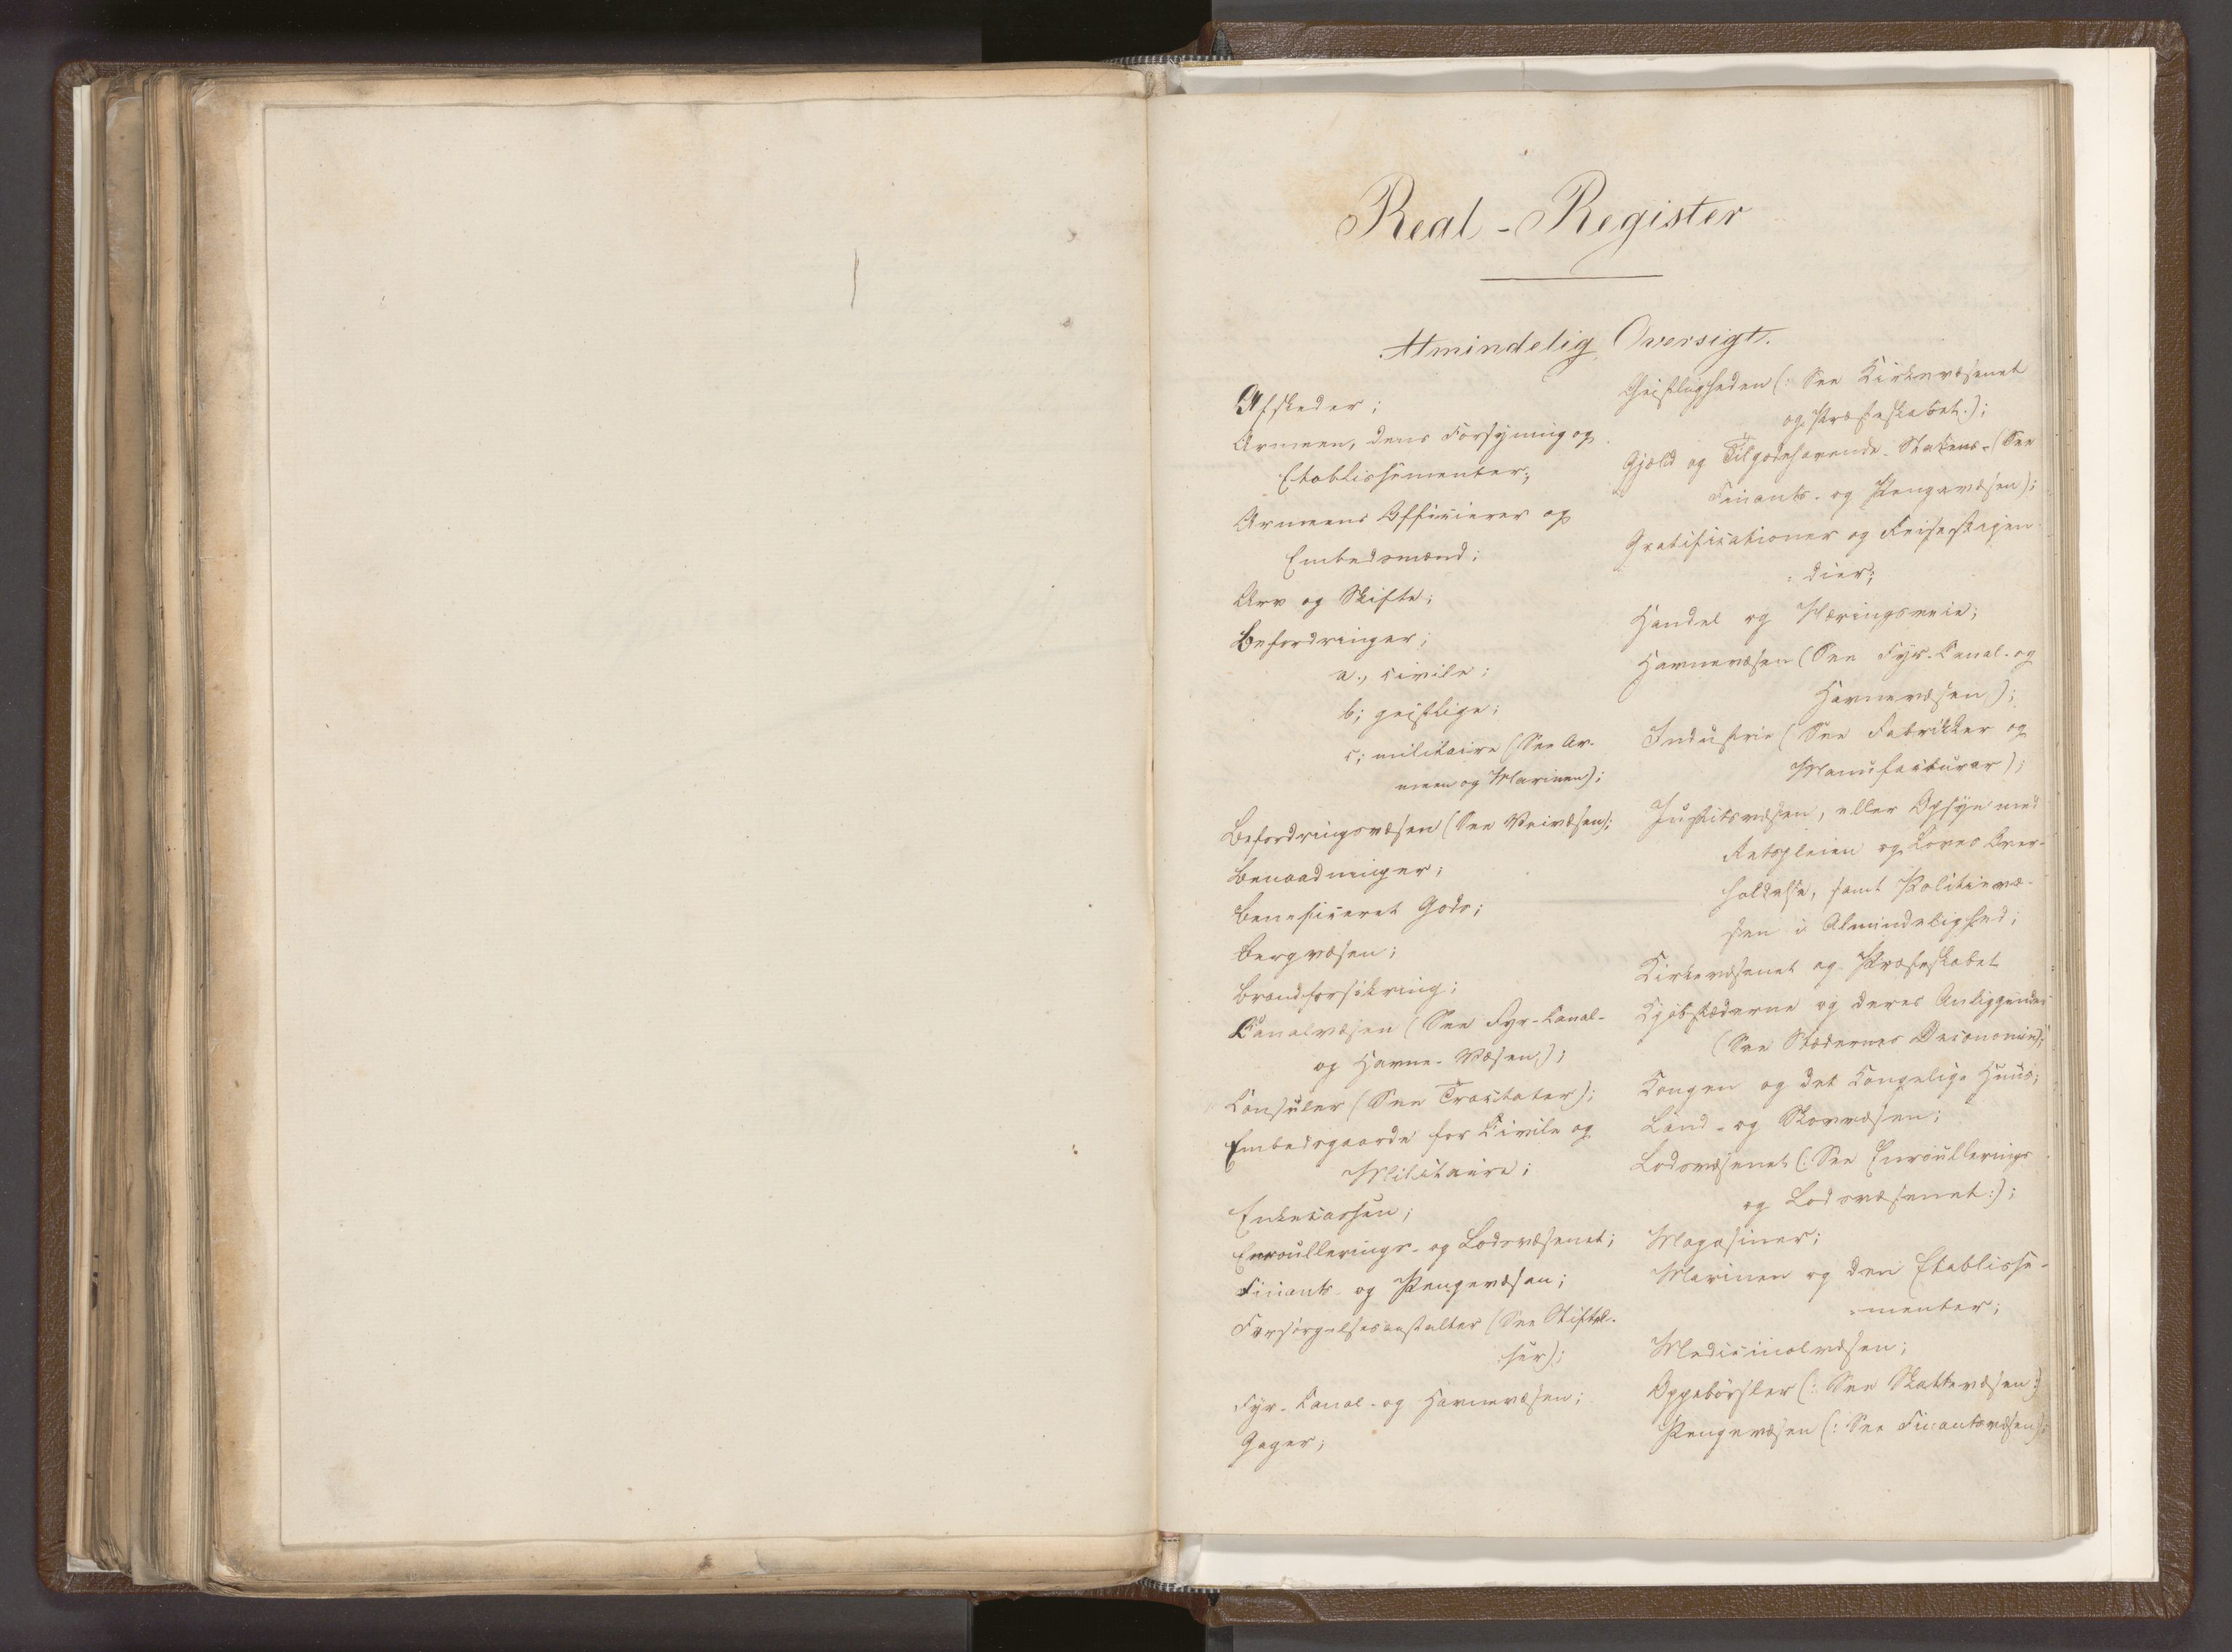 Real-Register
Almindelig Oversigt.
Afskeder;
Armeen, dens Forsyning og
Etablissementer;
Armeens Officierer og
Embedsmænd;
Arv og Skifte;
Befordringer;
a., civile;
b; geistlige;
c; militaire (See Ar-
meen og Marinen);
Befordringsvæsen (See Veivæsen);
Benaadninger;
Beneficeret Gods;
Bergvæsen;
Brandforsikring;
Canalvæsen (See Fyr-Canal-
og Havne-Væsen);
Consuler (See Tractater);
Embedsgaarde for Civile og
Militaire;
Enkecassen;
Enroullerings- og Lodsvæsenet;
Finants- og Pengevæsen;
Forsörgelsesanstalter (See Stiftel-
ser);
Fyr-Canal- og Havnevæsen;
Gager;
Geistligheden (: See Kirkevæsenet
og Præsteskabet.);
Gjæld og Tilgodehavende. Statens- (See
Finants- og Pengevæsen);
Gratificationer og Reisestipen
=dier;
Handel og Næringsveie;
Havnevæsen (See Fyr-Canal- og
Havnevæsen);
Industrie (See Fabrikker og
Manufacturer);
Justitsvæsen, eller Opsyn med
Retspleien og Loves Over-
holdelse, samt Politievæ-
sen i Almindelighed;
Kirkevæsenet og Præsteskabet
Kjöbstæderne og deres Anliggender
(See Stædernes Oeconomie);
Kongen og det Kongelige Huus;
Land- og Skovvæsen;
Lodsvæsenet (: See Enroullerings
og Lodsvæsenet:);
Magasiner;
Marinen og den Etablisse-
=menter;
Medicinalvæsen;
Oppebörsler (: See Skattevæsen:)
Pengevæsen (: See Finantsvæsen);